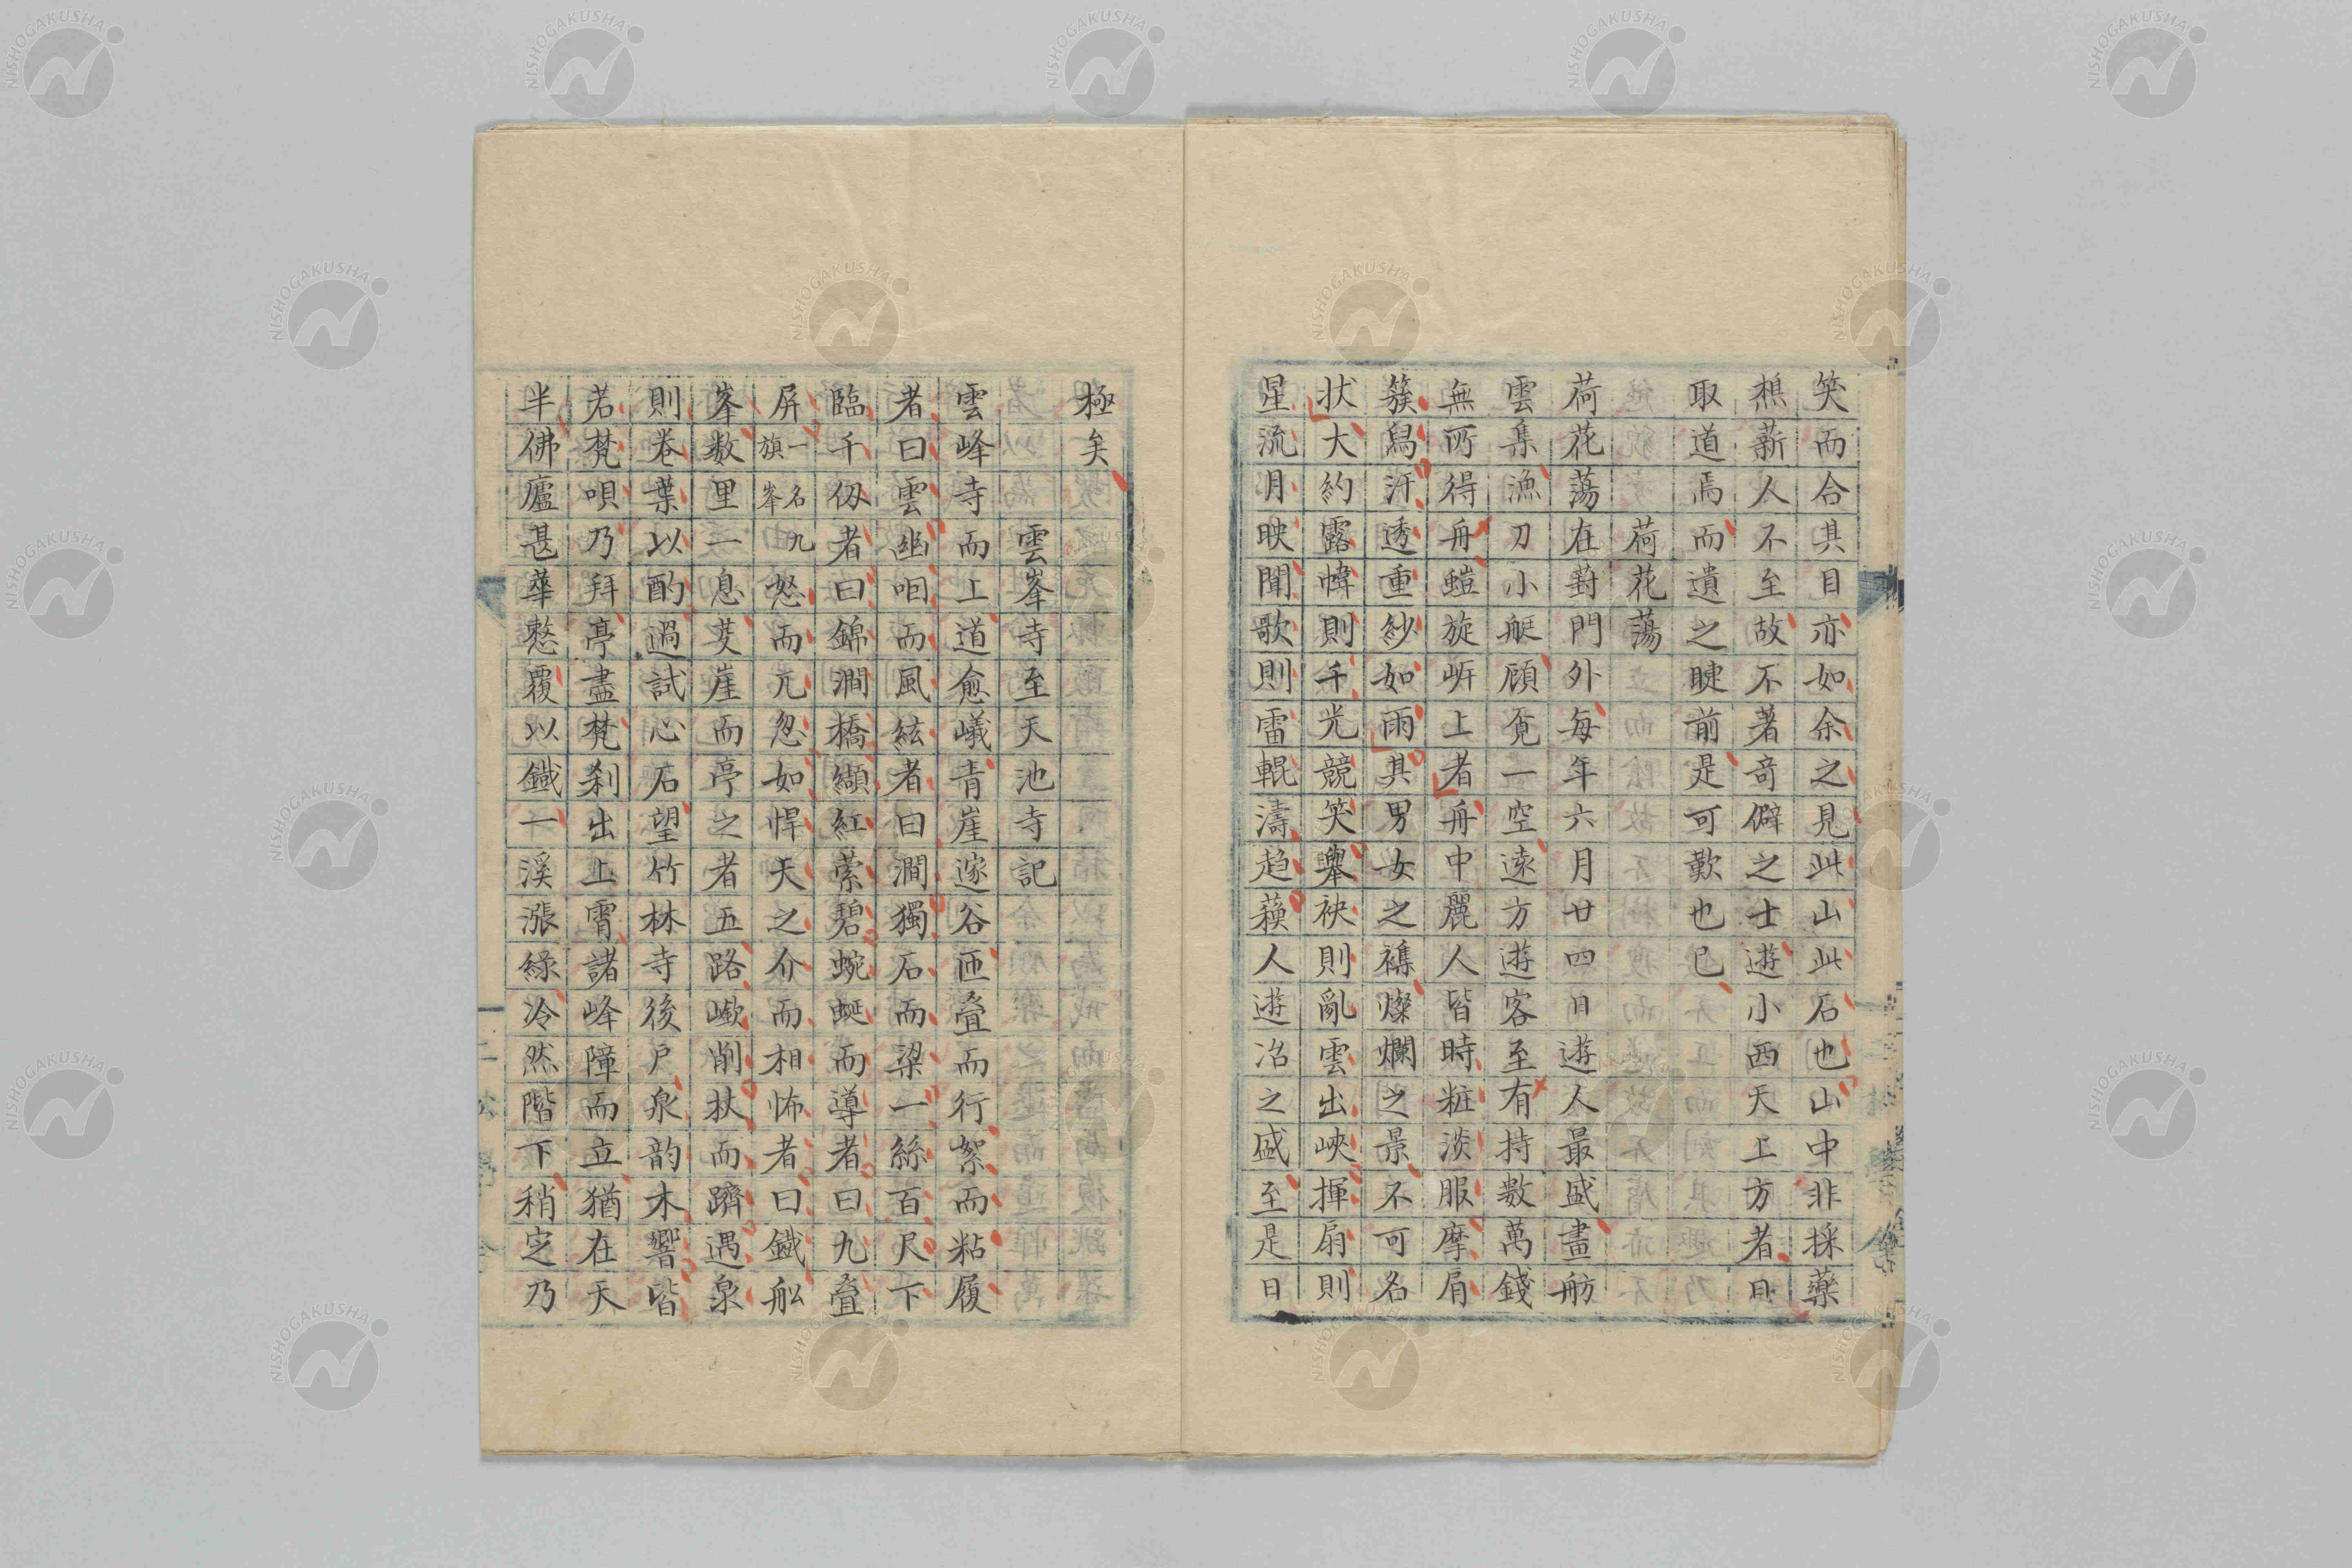 笑而合其目亦如余之見此山此石也山中非採藥
樵薪人不至故不著奇僻之士遊小西天上方者日
取道焉而遺之睫前是可歎也已
荷花蕩
荷花蕩在葑門外每年六月廿四日遊人最盛畫舫
雲集漁刀小艇顧覔一空遠方遊客至有持數萬錢
無所得舟螘旋岍上者舟中麗人皆時粧淡服摩肩
簇舄汗透重紗如雨其男女之襍燦爛之景不可名
状大約露幃則千光競笑舉袂則亂雲出峽揮扇則
星流月映聞歌則雷輥濤趋蘓人遊冶之盛至是日
極矣
雲峯寺至天池寺記
雲峰寺而上道愈巇青崖邃谷匝疊而行絮而粘履
者曰雲幽咽而風絃者曰澗獨石而梁一絲百尺下
臨千仞者曰錦澗橋纈紅縈碧蜿蜒而導者曰九疊
屏旗一峯名九怒而亢忽如悍夫之介而相怖者曰鐵舩
峯数里一息芟崖而亭之者五路巇削扶而躋遇泉
則卷葉以酌過試心石望竹林寺後户泉韵木響皆
若梵唄乃拜亭盡梵刹出上霄諸峰障而立猶在天
半佛廬甚華整覆以鐵一溪漲綠冷然階下稍定乃
NISHOGAKUSHA